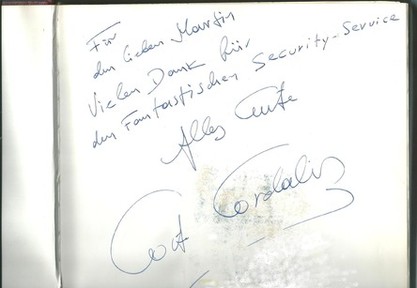 Für
den lieben Martin
Vielen Dank für
den Fantastischen Security-Service
Alles Gute
Costa Cordalis